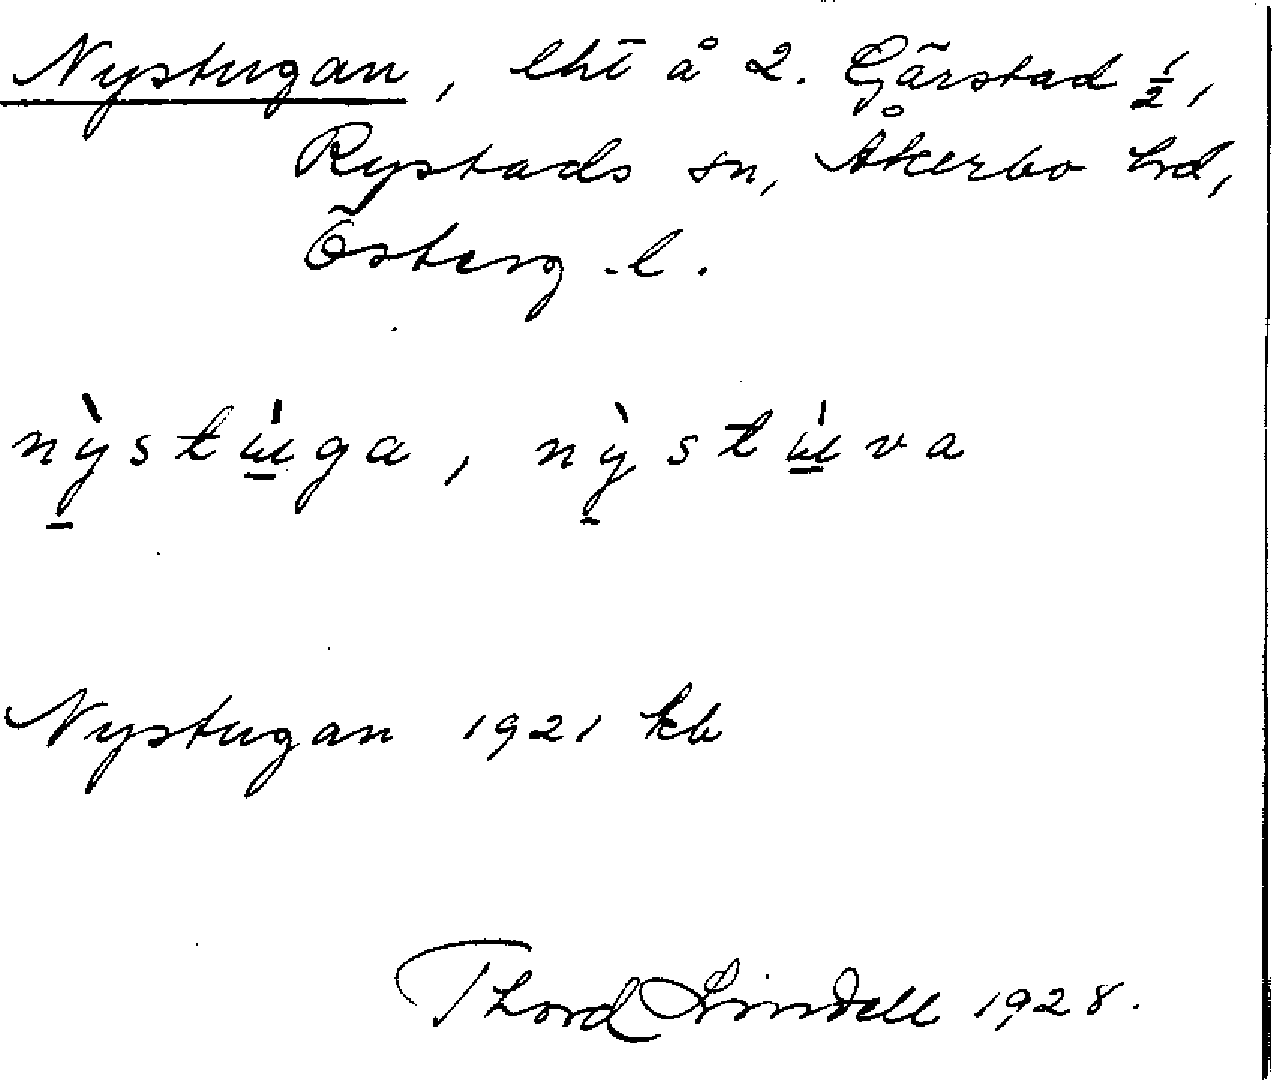 Nystugan, lht å 2. Gärstad ½,
Rystads sn, Åkerbo hd,
Österg. l.
nỳstúga, nỳstúva
Nystugan 1921 kb
Thord Lindell 1928.